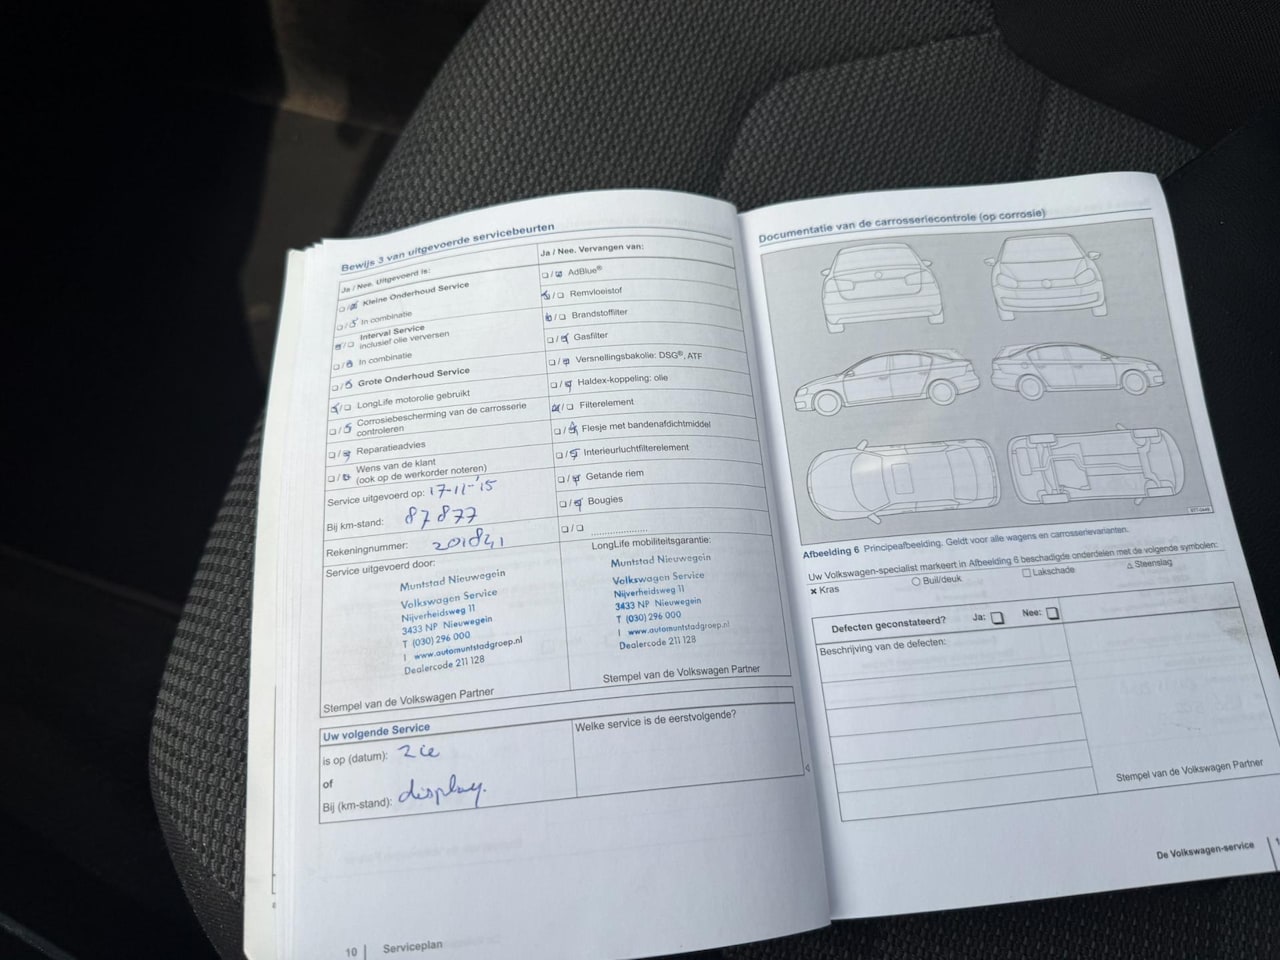 Bewijs 3 van uitgevoerde servicebeurten
Ja / Nee. Uitgevoerd is:
Kleine Onderhoud Service
In combinatie
Interval Service
inclusief olie verversen
In combinatie
Grote Onderhoud Service
LongLife motorolie gebruikt
Corrosiebescherming van de carrosserie
controleren
Reparatieadvies
Wens van de klant
(ook op de werkorder noteren)
Service uitgevoerd op: 17-11-'15
Bij km-stand: 87877
Rekeningnummer:
Service uitgevoerd door:
Muntstad Nieuwegein
Volkswagen Service
Nijverheidsweg 11
3433 NP Nieuwegein
T (030) 296 000
I www.automuntstadgroep.nl
Dealercode 211 128
Stempel van de Volkswagen Partner
Ja / Nee. Vervangen van:
AdBlue®
Remvloeistof
Brandstoffilter
Gasfilter
Versnellingsbakolie: DSG®, ATF
Haldex-koppeling: olie
Filterelement
Flesje met bandenafdichtmiddel
Interieurluchtfilterelement
Getande riem
Bougies
LongLife mobiliteitsgarantie:
Muntstad Nieuwegein
Volkswagen Service
Nijverheidsweg 11
3433 NP Nieuwegein
T (030) 296 000
I www.automuntstadgroep.nl
Dealercode 211 128
Stempel van de Volkswagen Partner
Uw volgende Service
is op (datum): zie
of
Bij (km-stand): display.
Welke service is de eerstvolgende?
10 | Serviceplan
Documentatie van de carrosseriecontrole (op corrosie)
Afbeelding 6 Principeafbeelding. Geldt voor alle wagens en carrosserievarianten.
Uw Volkswagen-specialist markeert in Afbeelding 6 beschadigde onderdelen met de volgende symbolen:
× Kras ○ Buil/deuk □ Lakschade △ Steenslag
Defecten geconstateerd? Ja: Nee:
Beschrijving van de defecten:
Stempel van de Volkswagen Partner
De Volkswagen-service